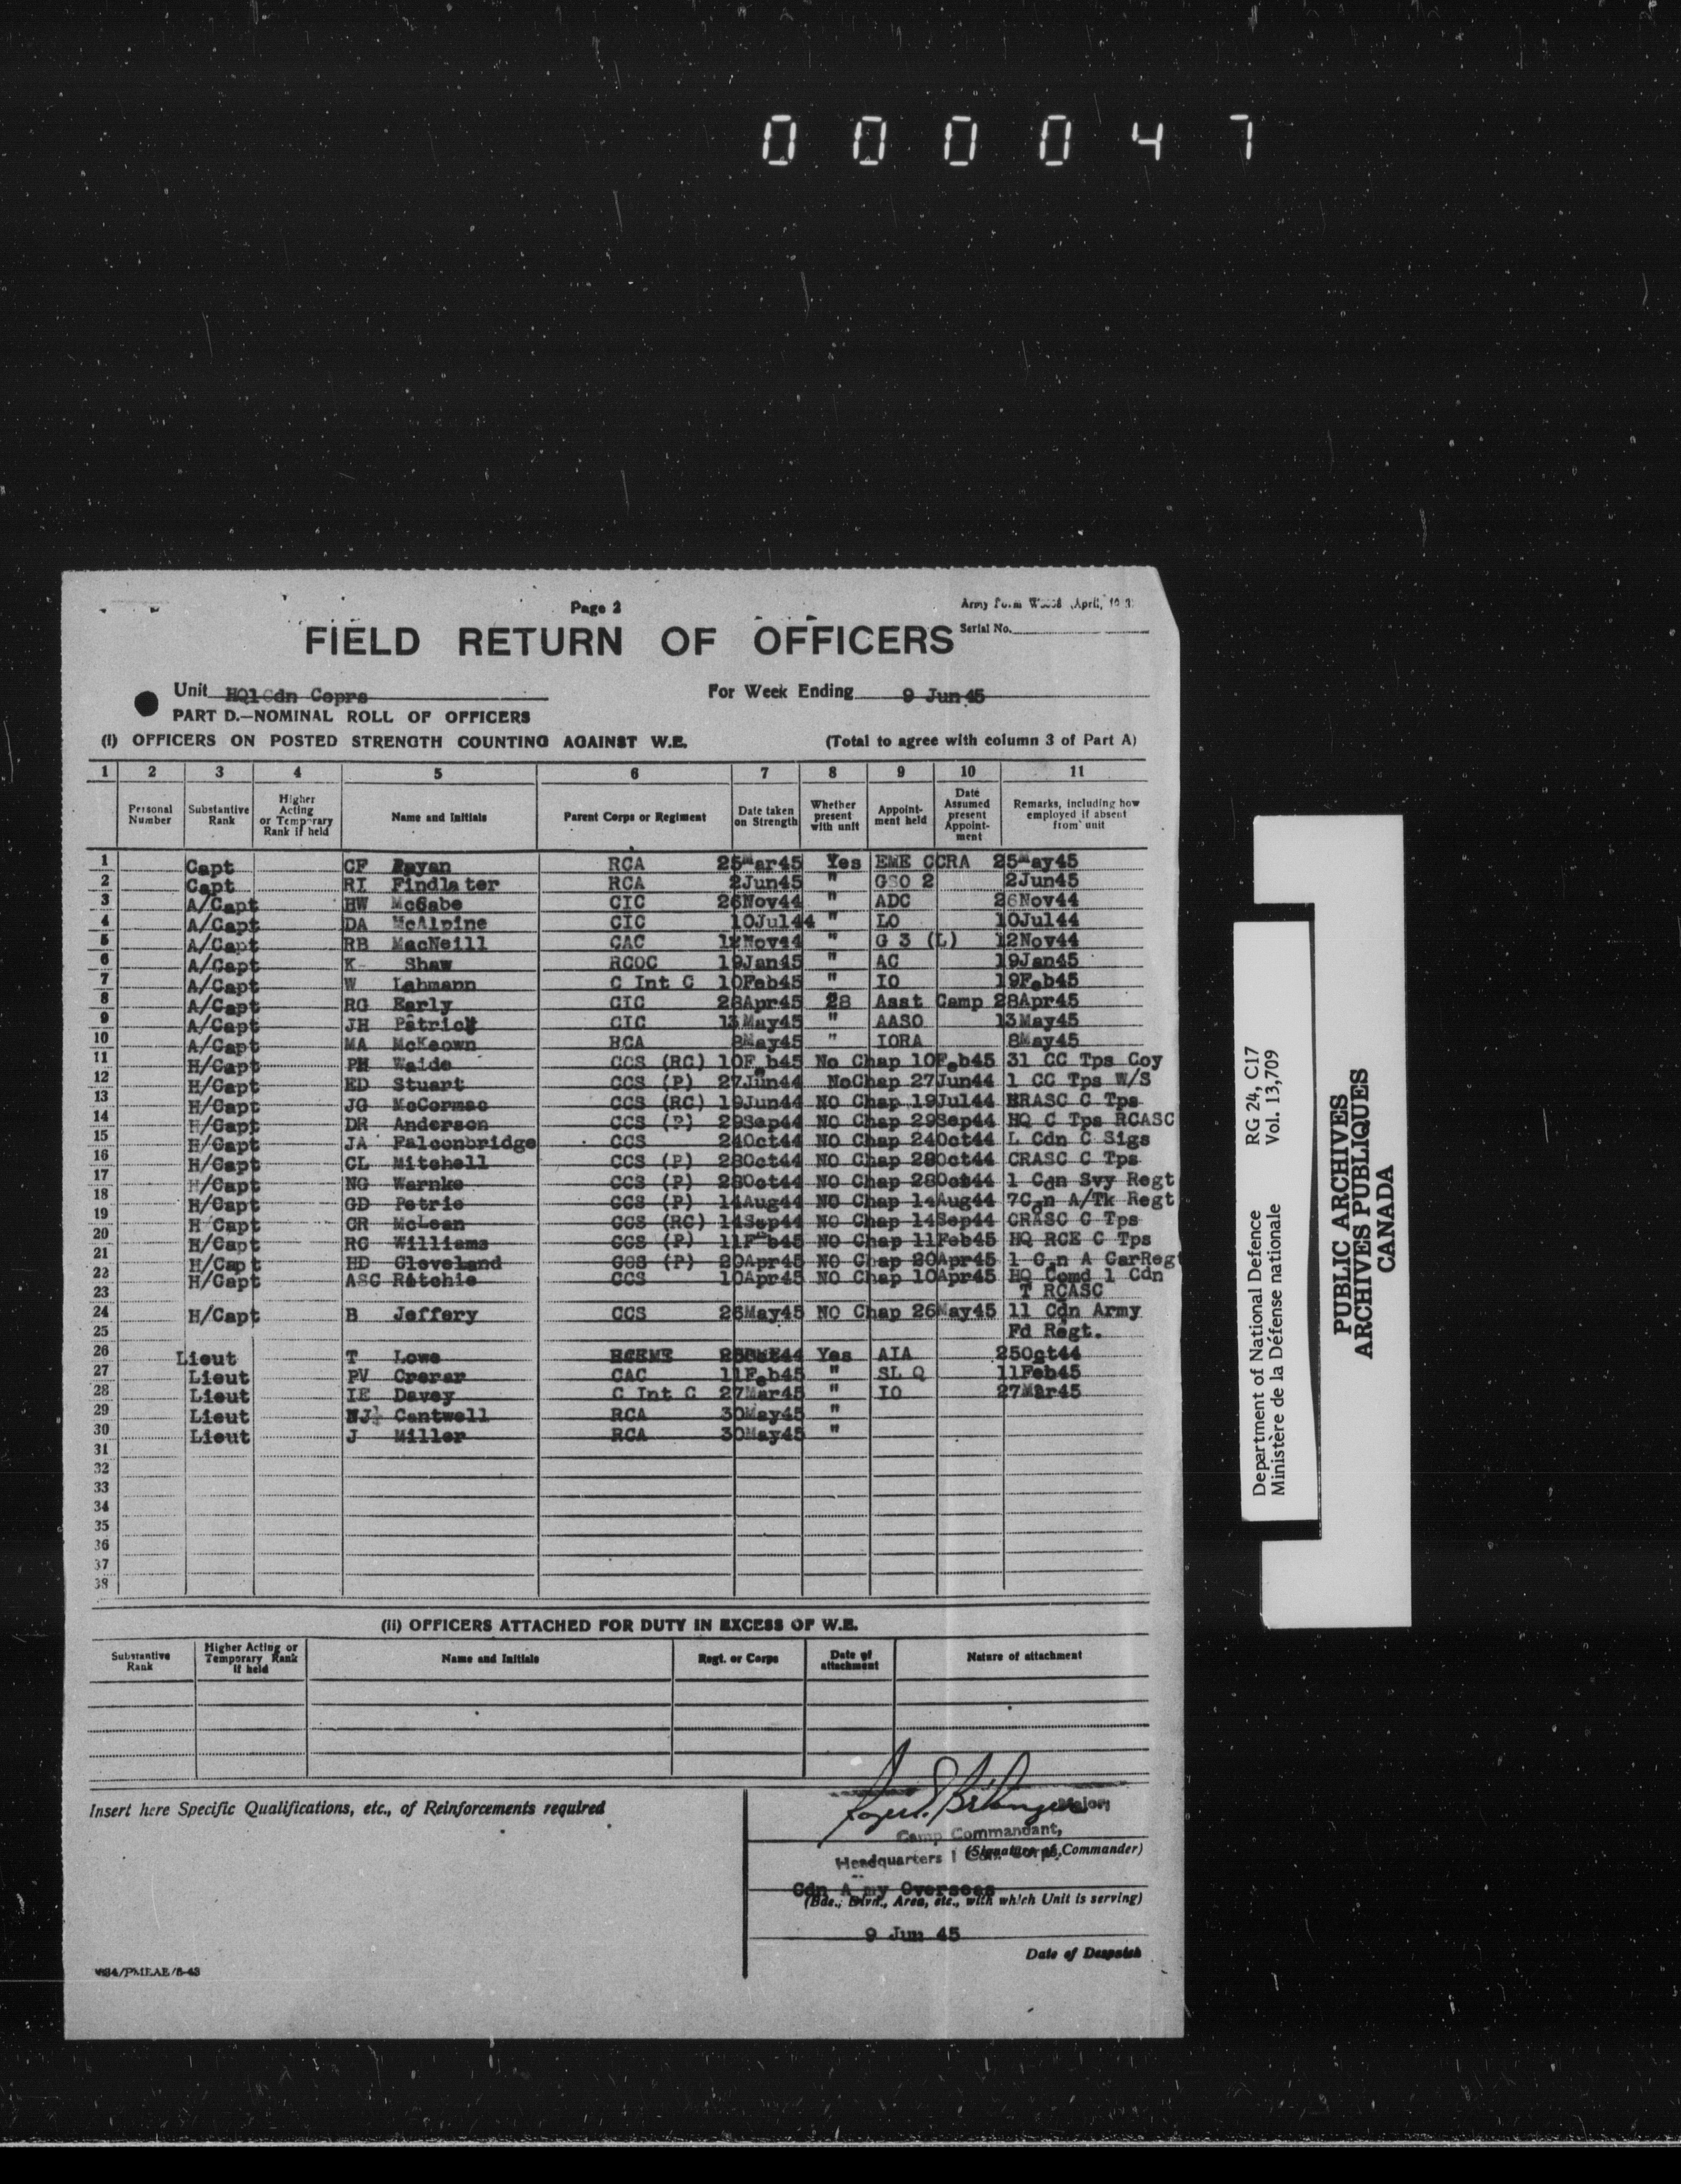 0 0 0 0 4 7
Page 2
Army Form (April,
Serial No.
FIELD RETURN OF OFFICERS
Unit HQ1Cdn Coprs For Week Ending 9 Jun 45
PART D.—NOMINAL ROLL OF OFFICERS
(i) OFFICERS ON POSTED STRENGTH COUNTING AGAINST W.E. (Total to agree with column 3 of Part A)
1 2 3 4 5 6 7 8 9 10 11
Personal Number Substantive Rank Higher Acting or Temporary Rank if held Name and Initials Parent Corps or Regiment Date taken on Strength Whether present with unit Appoint-ment held Date Assumed present Appoint-ment Remarks, including how employed if absent from unit
1 Capt CF Rayan RCA 25Mar45 Yes EME CCRA 25May45
2 Capt RI Findlater RCA 2Jun45 " GSO 2 2Jun45
3 A/Capt HW McCabe CIC 26Nov44 " ADC 26Nov44
4 A/Capt DA McAlpine CIC 10Jul44 " LO 10Jul44
5 A/Capt RB MacNeill CAC 12Nov44 " G 3 (L) 12Nov44
6 A/Capt K- Shaw RCOC 19Jan45 " AC 19Jan45
7 A/Capt W Lahmann C Int C 10Feb45 " IO 19Feb45
8 A/Capt RG Early CIC 28Apr45 28 Asst Camp 28Apr45
9 A/Capt JH Patrick CIC 13May45 " AASO 13May45
10 A/Capt MA McKeown RCA 8May45 " IORA 8May45
11 H/Capt PH Waide CCS (RC) 10Feb45 No Chap 10Feb45 31 CC Tps Coy
12 H/Capt ED Stuart CCS (P) 27Jun44 NoChap 27Jun44 1 CC Tps W/S
13 H/Capt JG McCormac CCS (RC) 19Jun44 NO Chap 19Jul44 BRASC C Tps
14 H/Capt DR Anderson CCS (P) 29Sep44 NO Chap 29Sep44 HQ C Tps RCASC
15 H/Capt JA Falconbridge CCS 24Oct44 NO Chap 24Oct44 L Cdn C Sigs
16 H/Capt CL Mitchell CCS (P) 28Oct44 NO Chap 28Oct44 CRASC C Tps
17 H/Capt NG Warnke CCS (P) 28Oct44 NO Chap 28Oct44 1 Cdn Svy Regt
18 H/Capt GD Petrie CCS (P) 14Aug44 NO Chap 14Aug44 7Cdn A/Tk Regt
19 H Capt CR McLean CCS (RC) 14Sep44 NO Chap 14Sep44 CRASC C Tps
20 H/Capt RG Williams CCS (P) 11Feb45 NO Chap 11Feb45 HQ RCE C Tps
21 H/Capt HD Cleveland CCS (P) 20Apr45 NO Chap 20Apr45 1 C n A CarRegt
22 H/Capt ASC Ritchie CCS 10Apr45 NO Chap 10Apr45 HQ Comd 1 Cdn
23 T RCASC
24 H/Capt B Jeffery CCS 26May45 NO Chap 26May45 11 Cdn Army
25 Fd Regt.
26 Lieut T Lowe RCEME Yes AIA 25Oct44
27 Lieut PV Crerar CAC 11Feb45 " SL Q 11Feb45
28 Lieut IE Davey C Int C 27Mar45 " IO 27Mar45
29 Lieut NJ Cantwell RCA 30May45 "
30 Lieut J Miller RCA 30May45 "
31
32
33
34
35
36
37
38
(ii) OFFICERS ATTACHED FOR DUTY IN EXCESS OF W.E.
Substantive Rank Higher Acting or Temporary Rank if held Name and Initials Regt. or Corps Date of attachment Nature of attachment
Insert here Specific Qualifications, etc., of Reinforcements required
Major,
Camp Commandant,
(Signature of Commander)
Headquarters 1 Cdn Corps,
Cdn A my Overseas
(Bde., Divn., Area, etc., with which Unit is serving)
9 Jun 45
Date of Despatch
Department of National Defence RG 24, C17
Ministère de la Défense nationale Vol. 13,709
PUBLIC ARCHIVES
ARCHIVES PUBLIQUES
CANADA